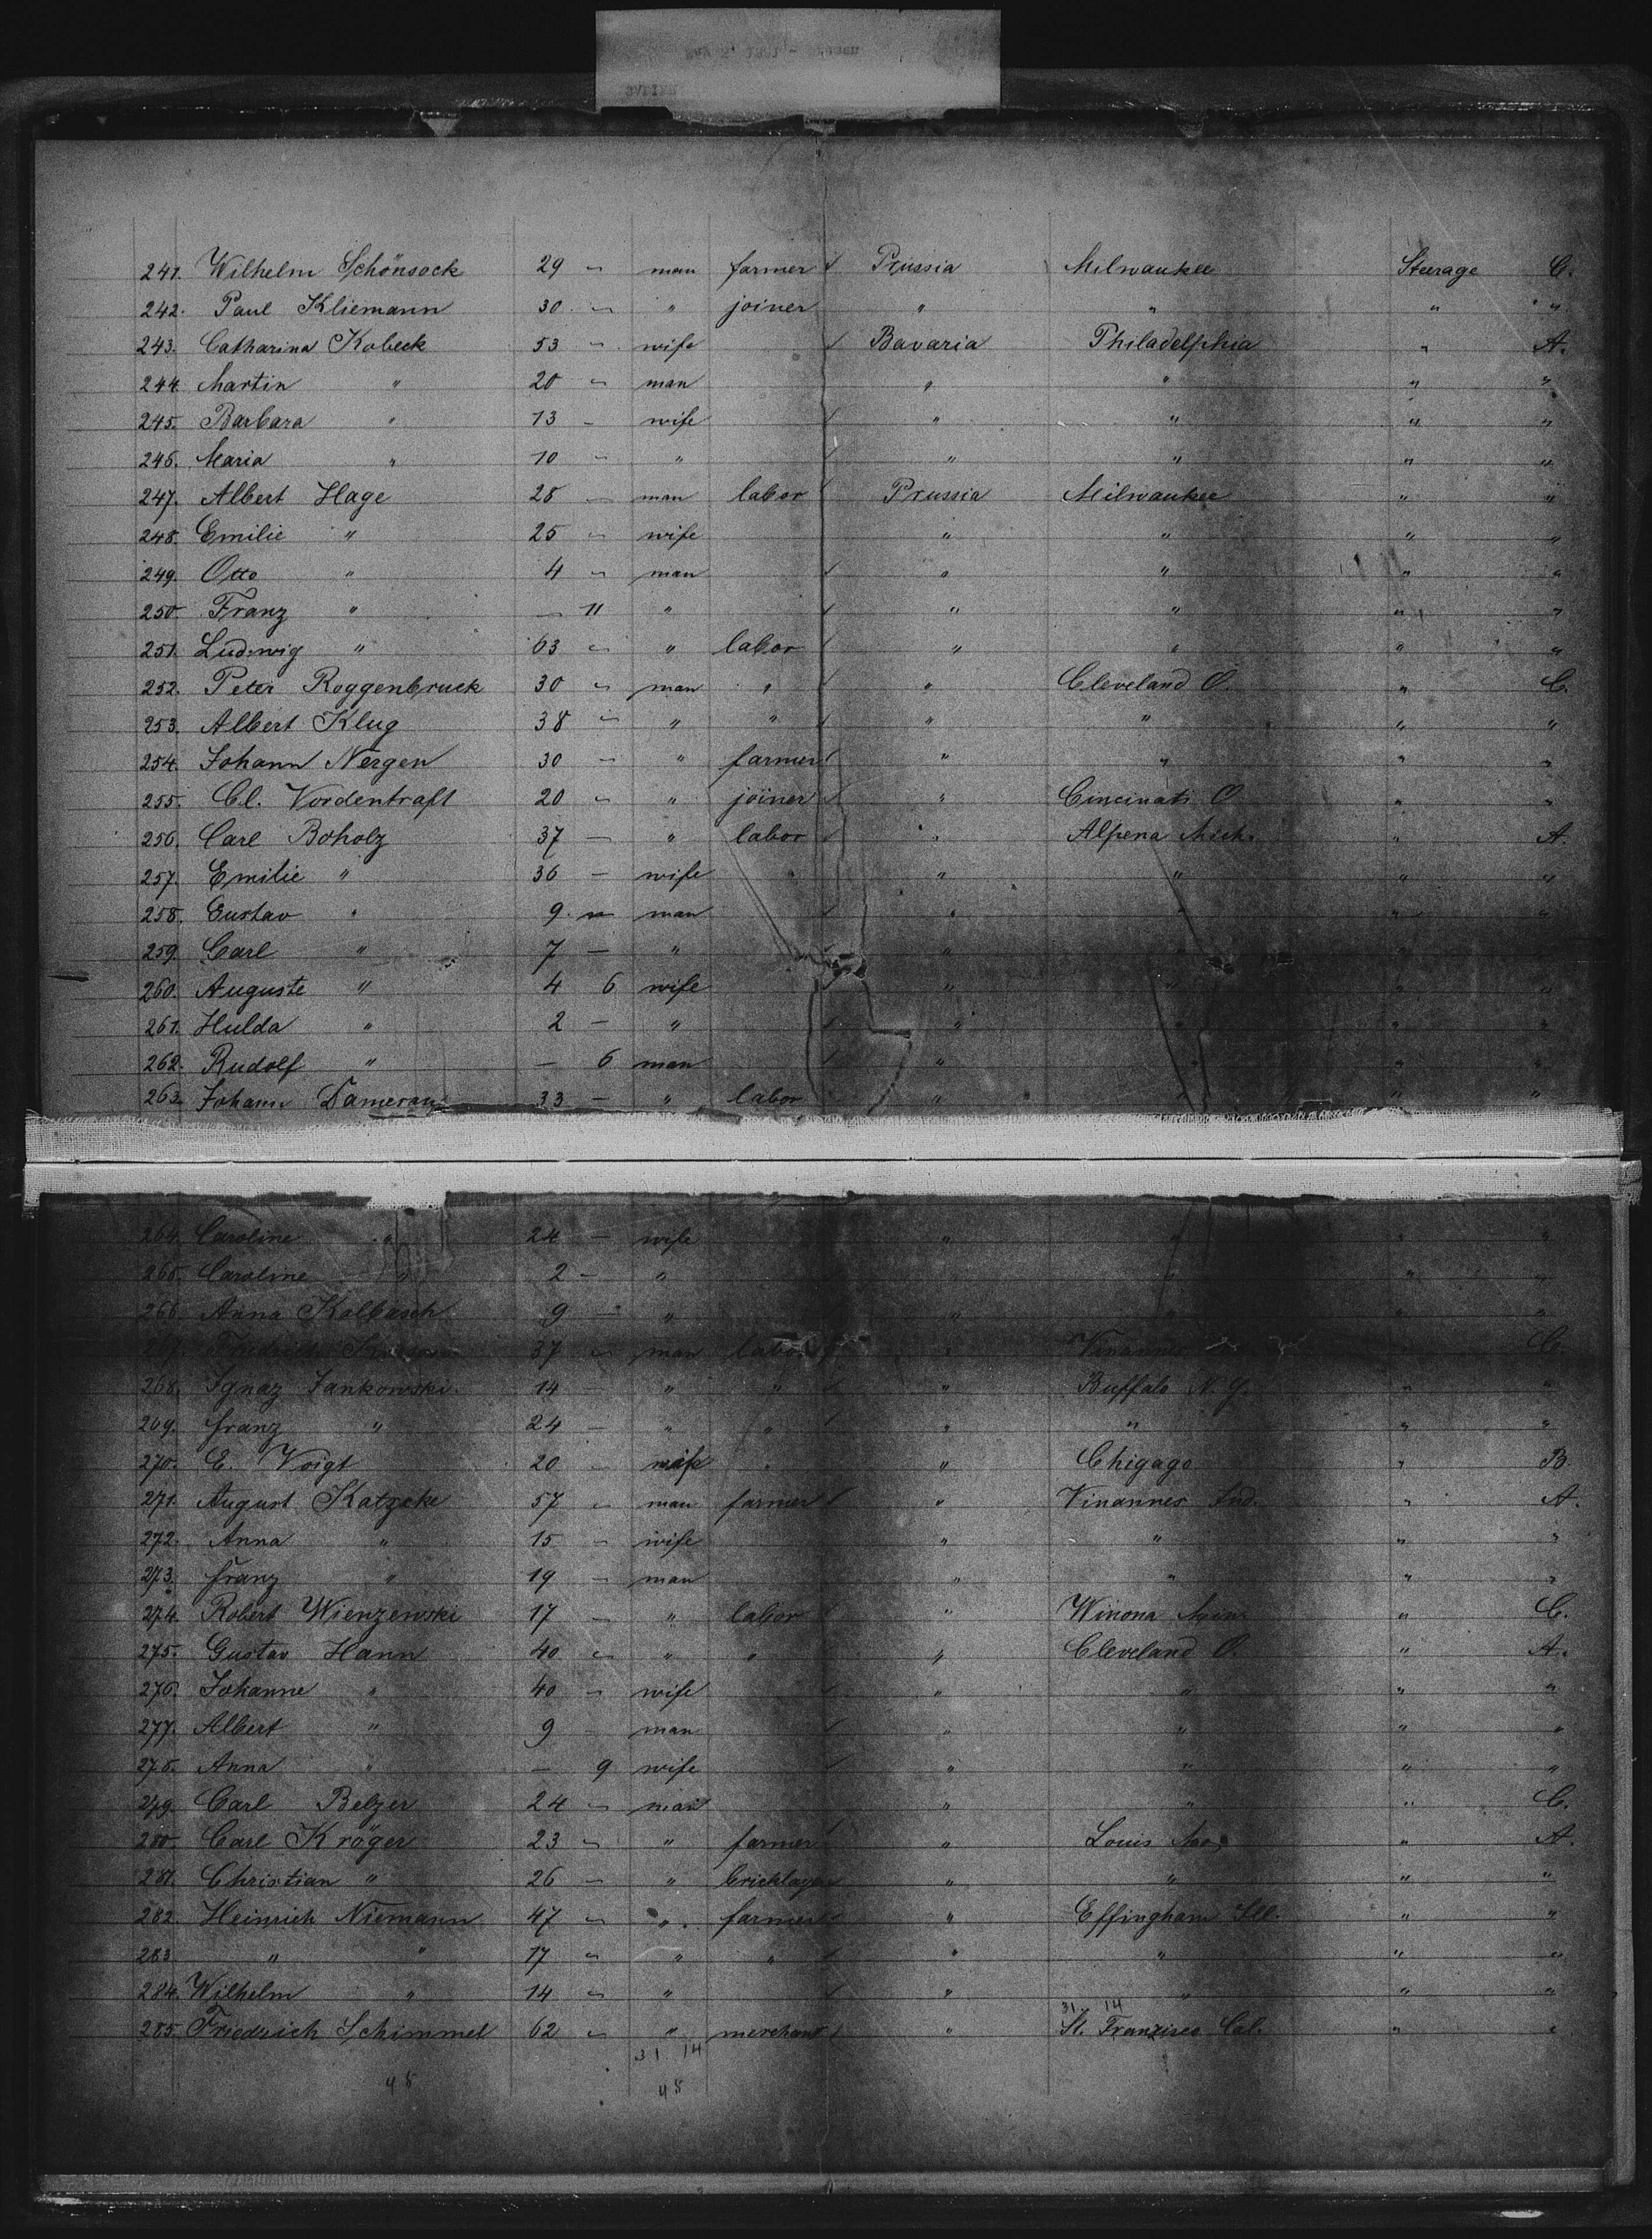 241. Wilhelm Schönsock 29 " man farmer Prussia Milwaukee Steerage C.
242. Paul Kliemann 30 " " joiner " " " "
243. Catharina Kobeck 53 " wife Bavaria Philadelphia " A.
244. Martin " 20 " man " " " "
245. Barbara " 13 - wife " " " "
246. Maria " 10 - " " " " "
247. Albert Hage 28 - man labor Prussia Milwaukee " "
248. Emilie " 25 " wife " " " "
249. Otto " 4 " man " " " "
250. Franz " - 11 " " " " "
251. Ludwig " 63 " " labor " " " "
252. Peter Roggenbruck 30 " man " " Cleveland O. " C.
253. Albert Klug 38 " " " " " " "
254. Johann Nergen 30 - " farmer " " " "
255. Cl. Vordentraft 20 " " joiner " Cincinati O " "
256. Carl Boholz 37 - " labor " Alpena Mich. " A.
257. Emilie " 36 - wife " " " "
258. Gustav " 9 " man " " " "
259. Carl " 7 - " " " " "
260. Auguste " 4 6 wife " " " "
261. Hulda " 2 - " " " " "
262. Rudolf " - 6 man " " " "
263. Johann Damerau 33 - " labor " " " "
264. Caroline " 24 - wife " " " "
265. Caroline " 2 - " " " "
266. Anna Kalbasch 9 - " " " " "
267. Friedrich 37 " man labor " Vinannes " C.
268. Ignaz Jankowski 14 - " " " Buffalo N.Y. " "
269. Franz " 24 - " " " " " "
270. E. Voigt 20 - wife " " Chigago " B.
271. August Katzcke 57 " man farmer " Vinannes Ind. " A.
272. Anna " 15 - wife " " " "
273. Franz " 19 - man " " " "
274. Robert Wienzewski 17 - " labor " Winona Minn " C.
275. Gustav Hann 40 " " " " Cleveland O. " A.
276. Johanne " 40 - wife " " " "
277. Albert " 9 - man " " " "
278. Anna " - 9 wife " " " "
279. Carl Belzer 24 - man " " " C.
280. Carl Kröger 23 " " farmer " Louis Mo. " A.
281. Christian " 26 - " bricklayer " " " "
282. Heinrich Niemann 47 " " farmer " Effingham Ill. " "
283. " " 17 " " " " " " "
284. Wilhelm " 14 " " " " " "
31 14
285. Friedrich Schimmel 62 " " merchant " St. Franzisco Cal. " "
31 14
48 48